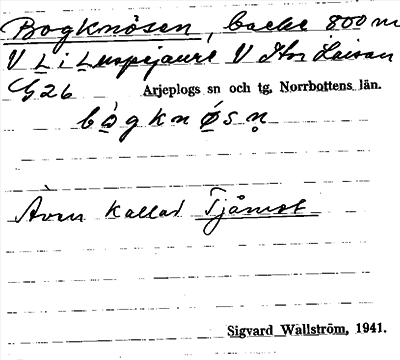 Bogknösen, backe 800 m
V L i Luspejaure V Stor Laisan
G26 Arjeplogs sn och tg, Norrbottens län.
bògknøsn̥
Även kallad Tjåmot
Sigvard Wallström, 1941.